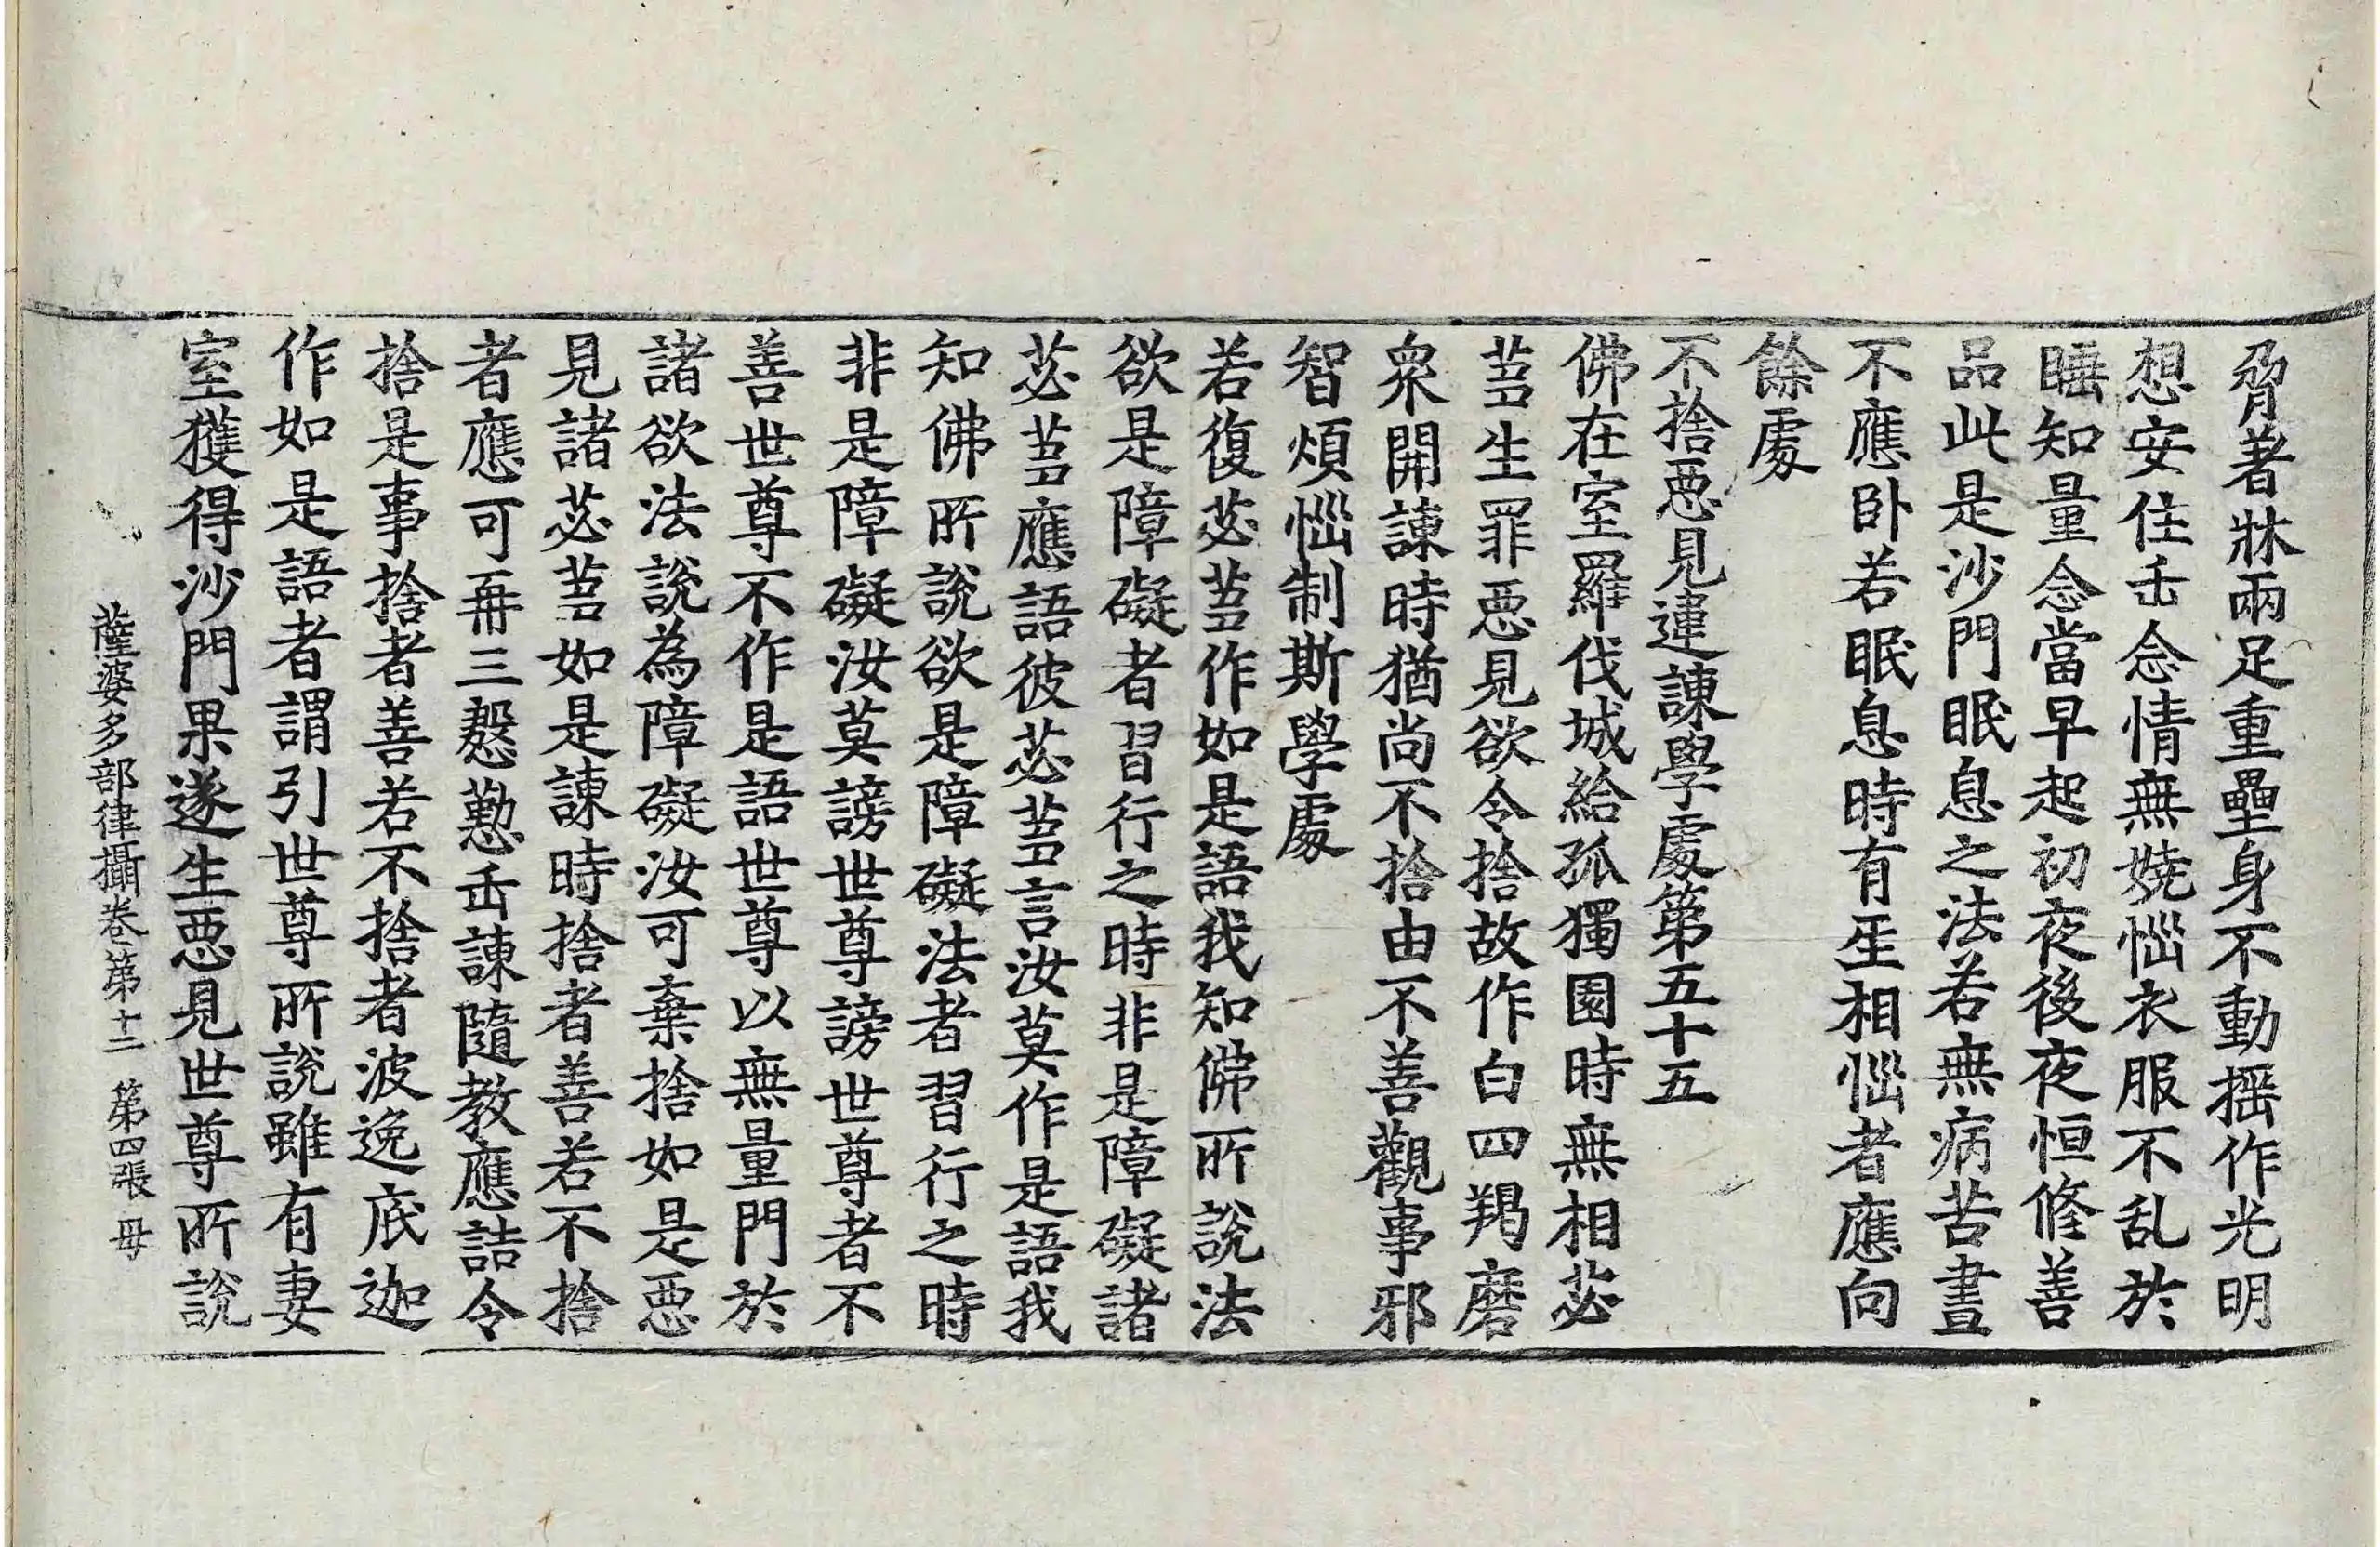 脅著牀兩足重壘身不動揺作光明
想安住缶念情無嬈惱衣服不乱於
睡知量念當早起初夜後夜恒修善
品此是沙門眠息之法若無病苦晝
不應卧若眠息時有𤯔相惱者應向
餘處
不捨惡見違諫學處第五十五
佛在室羅伐城給孤獨園時無相苾
蒭生罪惡見欲令捨故作白四羯磨
衆開諫時猶尚不捨由不善觀事邪
智煩惱制斯學處
若復苾蒭作如是語我知佛所說法
欲是障礙者習行之時非是障礙諸
苾蒭應語彼苾蒭言汝莫作是語我
知佛所說欲是障礙法者習行之時
非是障礙汝莫謗世尊謗世尊者不
善世尊不作是語世尊以無量門於
諸欲法說為障礙汝可棄捨如是惡
見諸苾蒭如是諫時捨者善若不捨
者應可再三慇懃缶諫隨教應詰令
捨是事捨者善若不捨者波逸底迦
作如是語者謂引世尊所說雖有妻
室獲得沙門果遂生惡見世尊所說
薩婆多部律攝卷第十二 第四張 毋